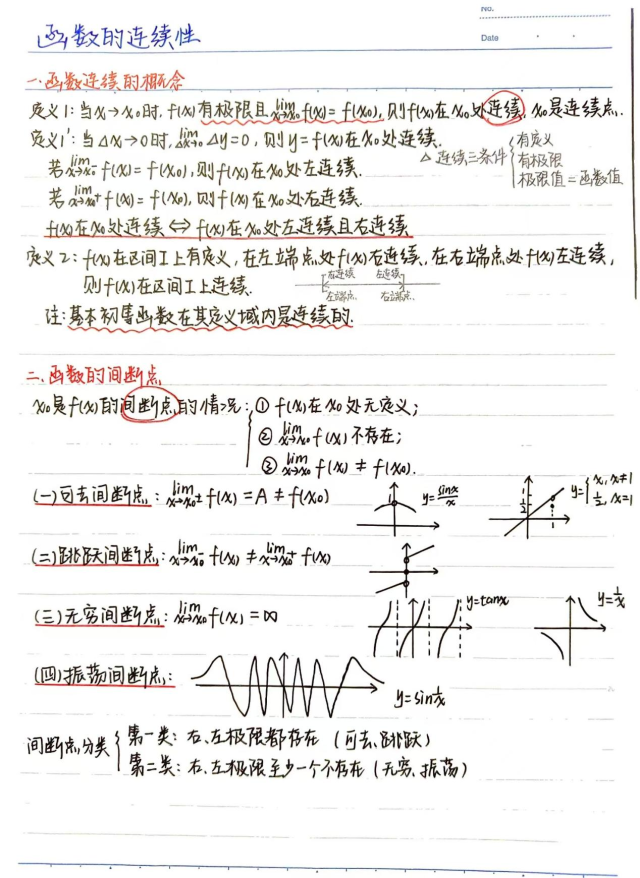 No.
函数的连续性
Date
一.函数连续的概念
定义1:当x→x₀时,f(x)有极限且lim x→x₀ f(x)=f(x₀),则f(x)在x₀处连续,x₀是连续点.
定义1':当△x→0时,lim △x→0 △y=0,则y=f(x)在x₀处连续.
△连续三条件{有定义
有极限
极限值=函数值
若lim x→x₀⁻ f(x)=f(x₀),则f(x)在x₀处左连续.
若lim x→x₀⁺ f(x)=f(x₀),则f(x)在x₀处右连续.
f(x)在x₀处连续⇔f(x)在x₀处左连续且右连续
定义2:f(x)在区间I上有定义,在左端点处f(x)右连续,在右端点处f(x)左连续,
则f(x)在区间I上连续.
右连续 左连续
左端点 右端点
注:基本初等函数在其定义域内是连续的.
二.函数的间断点
x₀是f(x)的间断点的情况:①f(x)在x₀处无定义;
②lim x→x₀ f(x)不存在;
③lim x→x₀ f(x)≠f(x₀).
(一)可去间断点:lim x→x₀± f(x)=A≠f(x₀)
1 y=sinx/x
1 1/2 y={x,x≠1
1/2,x=1
(二)跳跃间断点:lim x→x₀⁻ f(x)≠lim x→x₀⁺ f(x)
(三)无穷间断点:lim x→x₀ f(x)=∞
y=tanx
y=1/x
(四)振荡间断点:
y=sin1/x
间断点分类{第一类:右、左极限都存在(可去、跳跃)
第二类:右、左极限至少一个不存在(无穷、振荡)